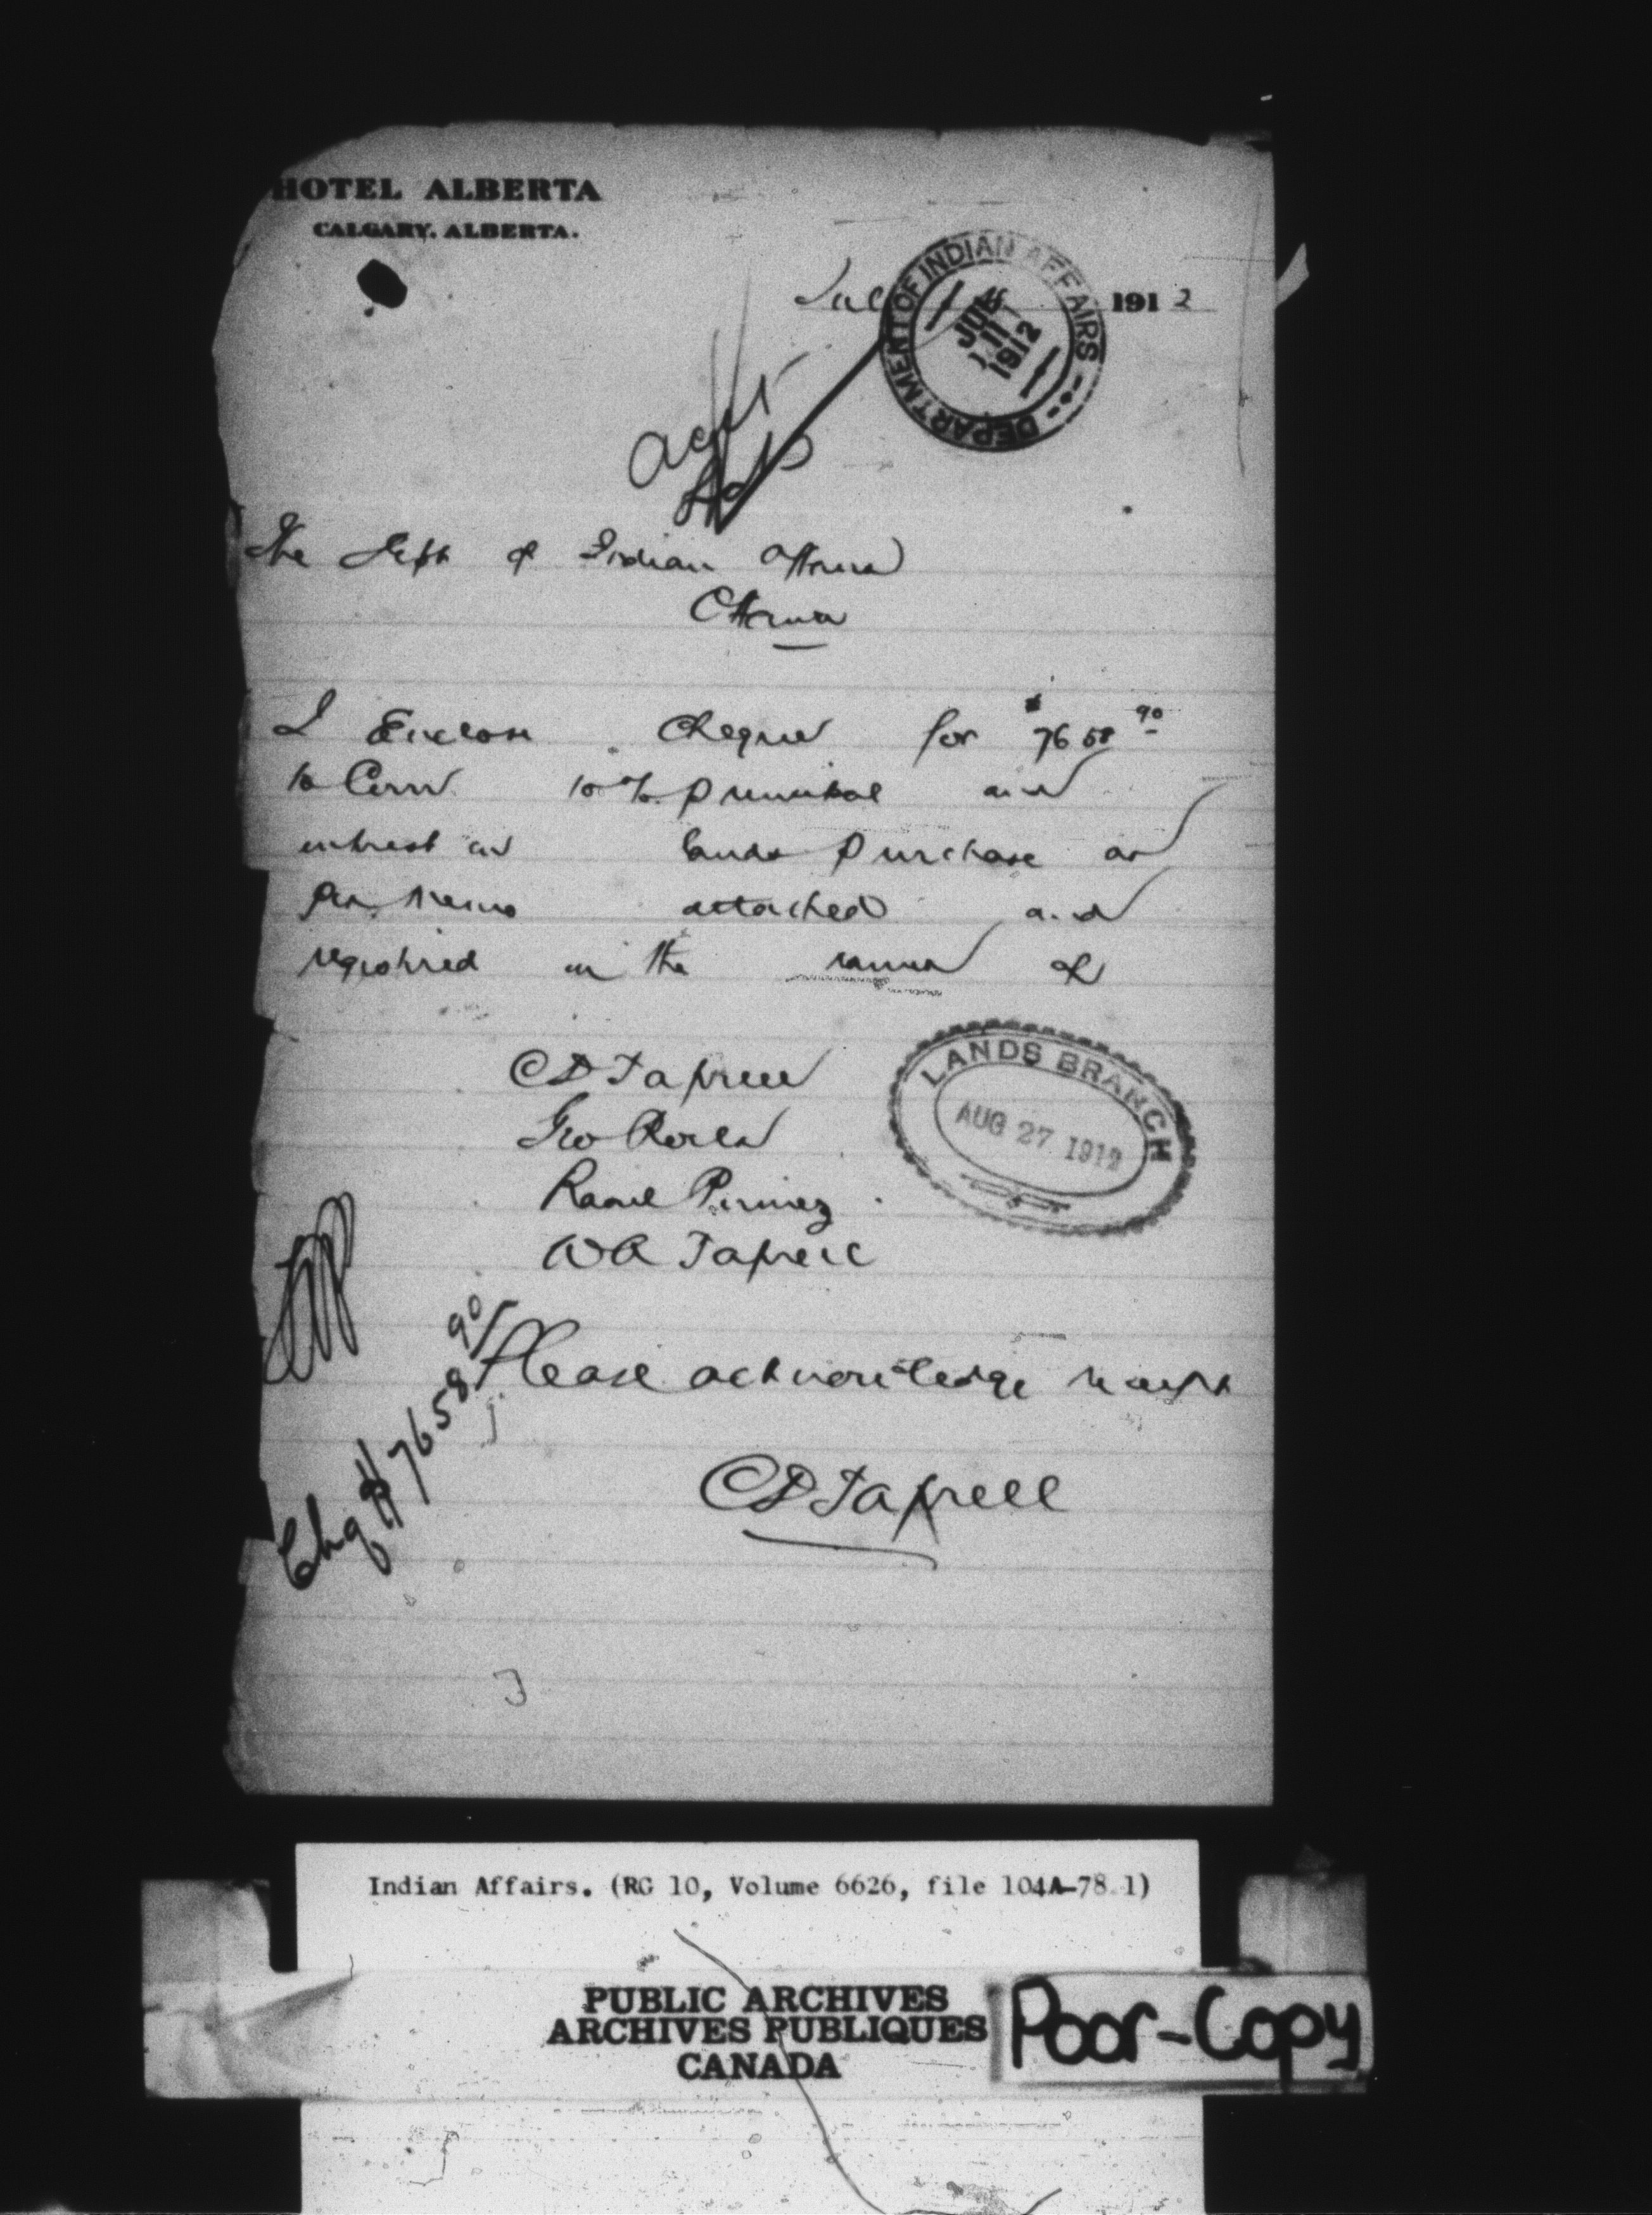 HOTEL ALBERTA
CALGARY, ALBERTA.
July 1912
DEPARTMENT OF INDIAN AFFAIRS
JUL 11 1912
The Dept of Indian Affairs
Ottawa
I Enclose Cheque for $7658 90
to Cover 10% principal and
interest on lands purchase as
per memo attached and
registered in the names of
CD Taprell
Geo
Raoul Pirmez
WA Taprell
LANDS BRANCH
AUG 27 1912
Please acknowledge receipt
Chq $7658 90
CD Taprell
Indian Affairs. (RG 10, Volume 6626, file 104A-78.1)
PUBLIC ARCHIVES
ARCHIVES PUBLIQUES
CANADA
Poor-Copy